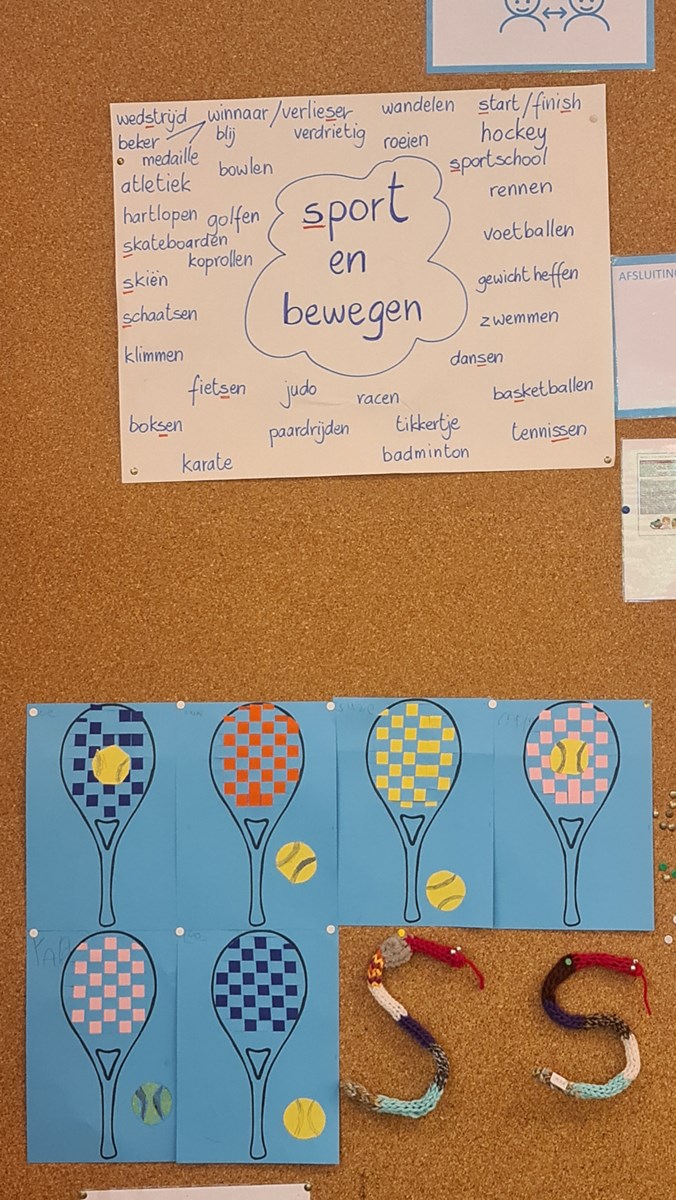 wedstrijd winnaar/verlieser wandelen start/finish
beker blij verdrietig roeien hockey
medaille bowlen sportschool
atletiek rennen
hartlopen golfen voetballen
skateboarden
koprollen
skiën gewicht heffen
schaatsen zwemmen
klimmen dansen
sport
en
bewegen
fietsen judo racen basketballen
boksen paardrijden tikkertje tennissen
karate badminton
AFSLUITING